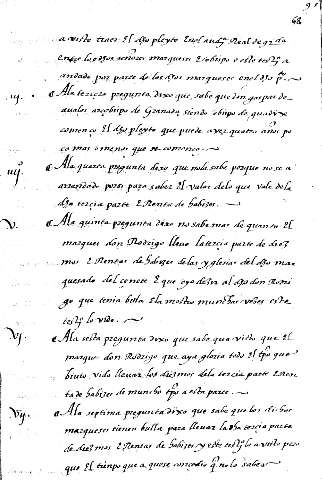 68
a visto traer El dho pleyto En el audia Real de grda
entre los dhos señores marqueses E obispo e este tso a
andado por parte de los dhos marqueses en el dho p.
iij. A la tercera pregunta dixo que sabe que don gaspar de
avalos arçobispo de Granada siendo obispo de guadix
començo El dho pleyto que puede aver quatro años po
co mas o menos que se començo
iiij A la quarta pregunta dixo que no la sabe porque no se a
arrendado por si para saber El valor de lo que vale de la
dha tercia parte E Renta de habizes.
V. A la quinta pregunta dixo no sabe mas de quanto El
marques don Rodrigo llevo la tercia parte de diez
mos E Rentas de habizes de las yglesias del dho mar
quesado del çenete E que oyo dezir al dho don Rodri
go que tenia bulla E la mostro munchas vezes este
tso lo vido.
Vj. A la sesta pregunta dixo que sabe que vido que El
marques don Rodrigo que aya gloria todo El tpo que
bivio vido llevar los diezmos de la tercia parte E Ren
ta de habizes de muncho tpo a esta parte.
Vij. A la setima pregunta dixo que sabe que los dichos
marqueses tienen bulla para llevar la dha tercia parte
de diezmos E Rentas de habizes y este tso lo a visto pero
que El tienpo que a que se concedio q no lo sabe